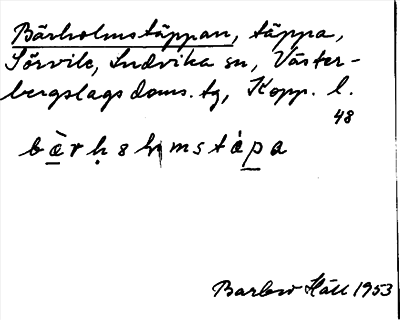 Bärholmstäppan, täppa,
Sörvik, Ludvika sn, Väster-
bergslags doms. tg, Kopp. l.
48
Barbro Häll 1953